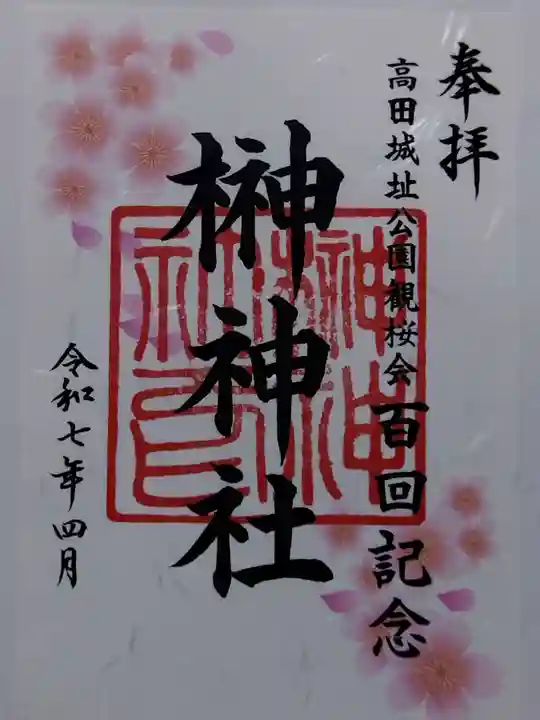 奉拝
高田城址公園観桜会百回記念
榊神社
令和七年四月